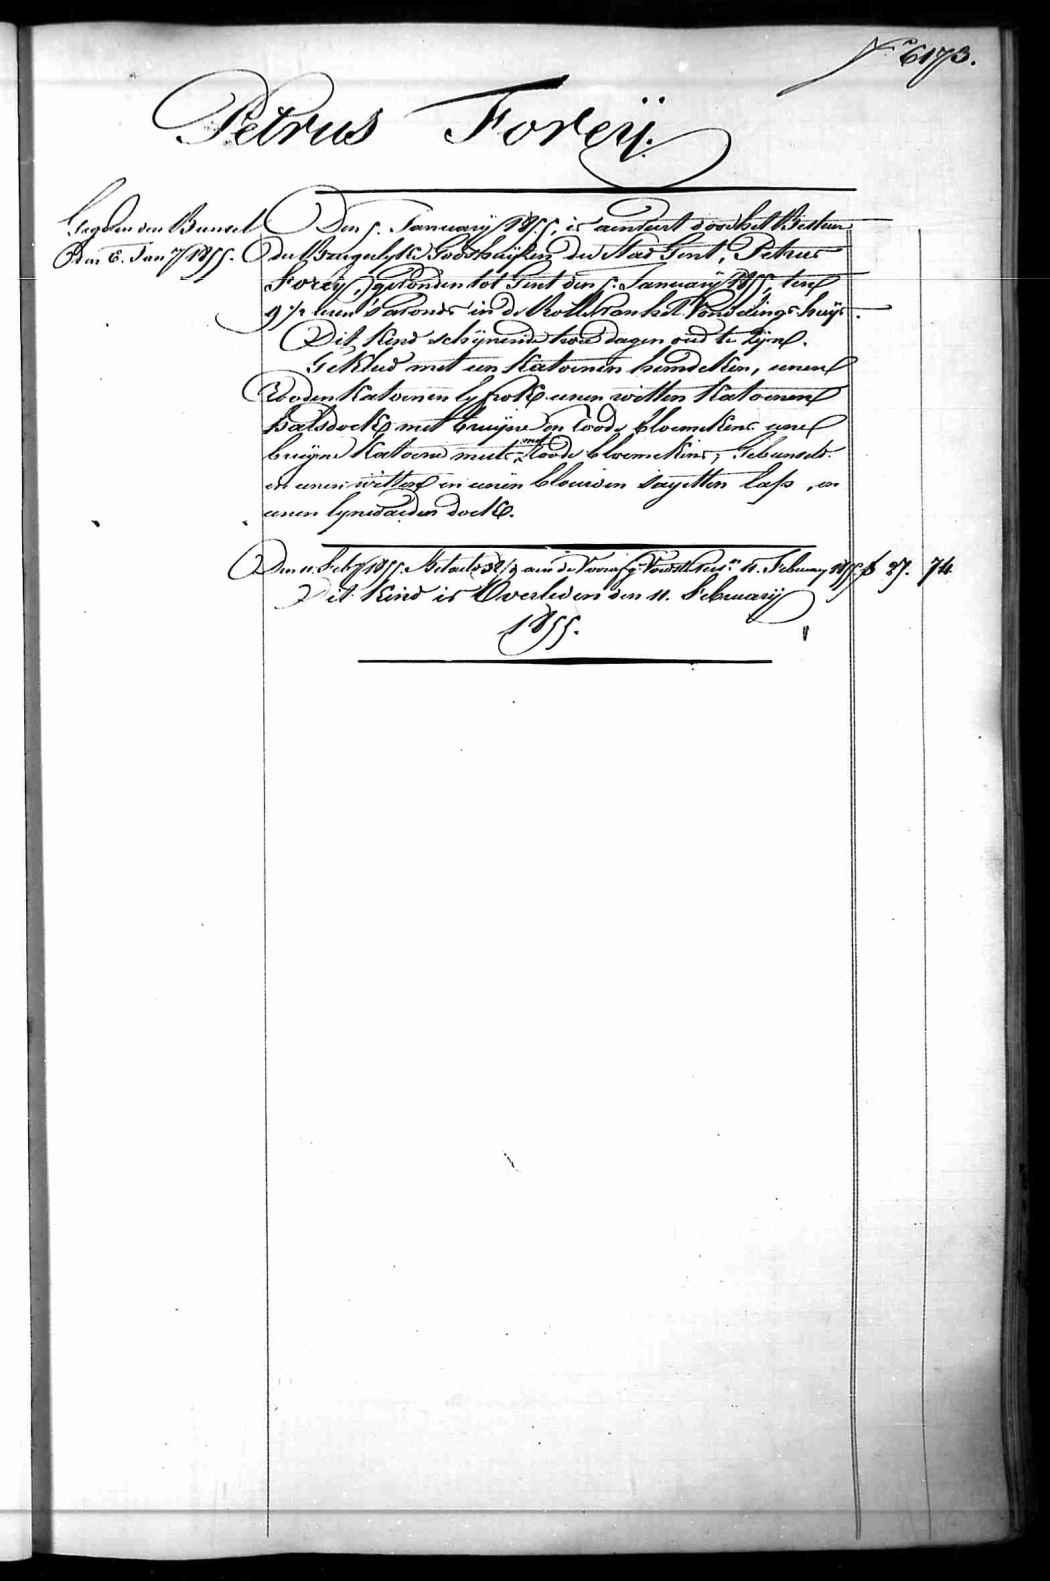 N.o 6173.
Petrus Foreÿ.
Gegeven den Bunsel
Den 6. Jan.y 1855.
Den 5. Januarÿ 1855, is aenveirt door het Bestuer
der Burgerlyke Godshuÿsen der Stad Gent, Petrus
Foreÿ, gevonden tot Gent den 5. Januarÿ 1855, ten
9 1/2 uren 's avonds in de Rolle van het Vondelings-huÿs.
Dit Kind schÿnende twee dagen oud te zÿn.
Gekleed met een Katoenen hemdeken, eenen
Rooden Katoenen lyfrok eenen witten Katoenen
halsdoek met bruÿne en roode bloemekens eene
bruÿne Katoene muts, met roode bloemekens, Gebunseld
in eenen witten en eenen blauwen sayetten lap, en
eenen lynwaeden doek.
Den 11. Feb.y 1855. Betaeld aen de 11. February 1855 f 27. 74
Dit Kind is Overleden den 11. Februarÿ
1855.